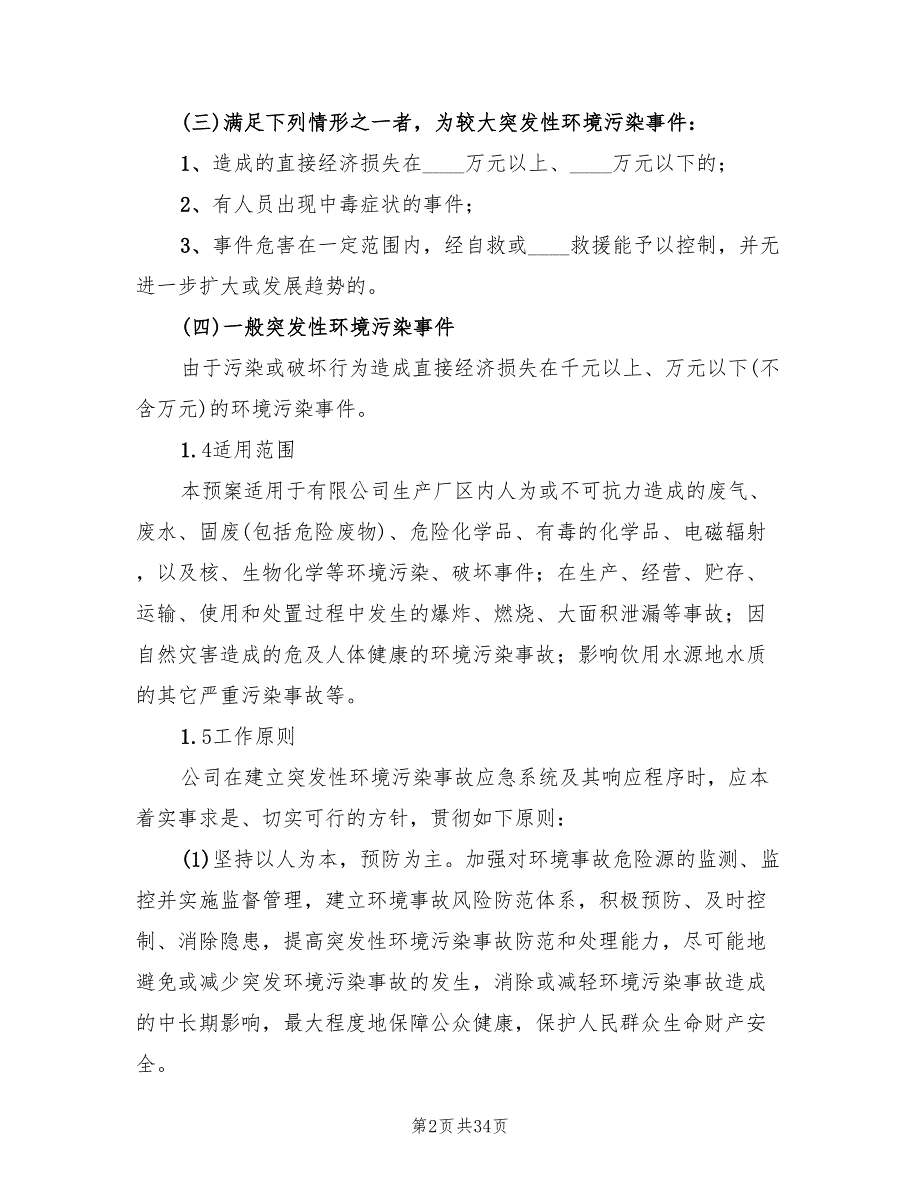 (三)满足下列情形之一者，为较大突发性环境污染事件：
1、造成的直接经济损失在____万元以上、____万元以下的；
2、有人员出现中毒症状的事件；
3、事件危害在一定范围内，经自救或____救援能予以控制，并无
进一步扩大或发展趋势的。
(四)一般突发性环境污染事件
由于污染或破坏行为造成直接经济损失在千元以上、万元以下(不
含万元)的环境污染事件。
1.4适用范围
本预案适用于有限公司生产厂区内人为或不可抗力造成的废气、
废水、固废(包括危险废物)、危险化学品、有毒的化学品、电磁辐射
，以及核、生物化学等环境污染、破坏事件；在生产、经营、贮存、
运输、使用和处置过程中发生的爆炸、燃烧、大面积泄漏等事故；因
自然灾害造成的危及人体健康的环境污染事故；影响饮用水源地水质
的其它严重污染事故等。
1.5工作原则
公司在建立突发性环境污染事故应急系统及其响应程序时，应本
着实事求是、切实可行的方针，贯彻如下原则：
(1)坚持以人为本，预防为主。加强对环境事故危险源的监测、监
控并实施监督管理，建立环境事故风险防范体系，积极预防、及时控
制、消除隐患，提高突发性环境污染事故防范和处理能力，尽可能地
避免或减少突发环境污染事故的发生，消除或减轻环境污染事故造成
的中长期影响，最大程度地保障公众健康，保护人民群众生命财产安
全。
第2页共34页